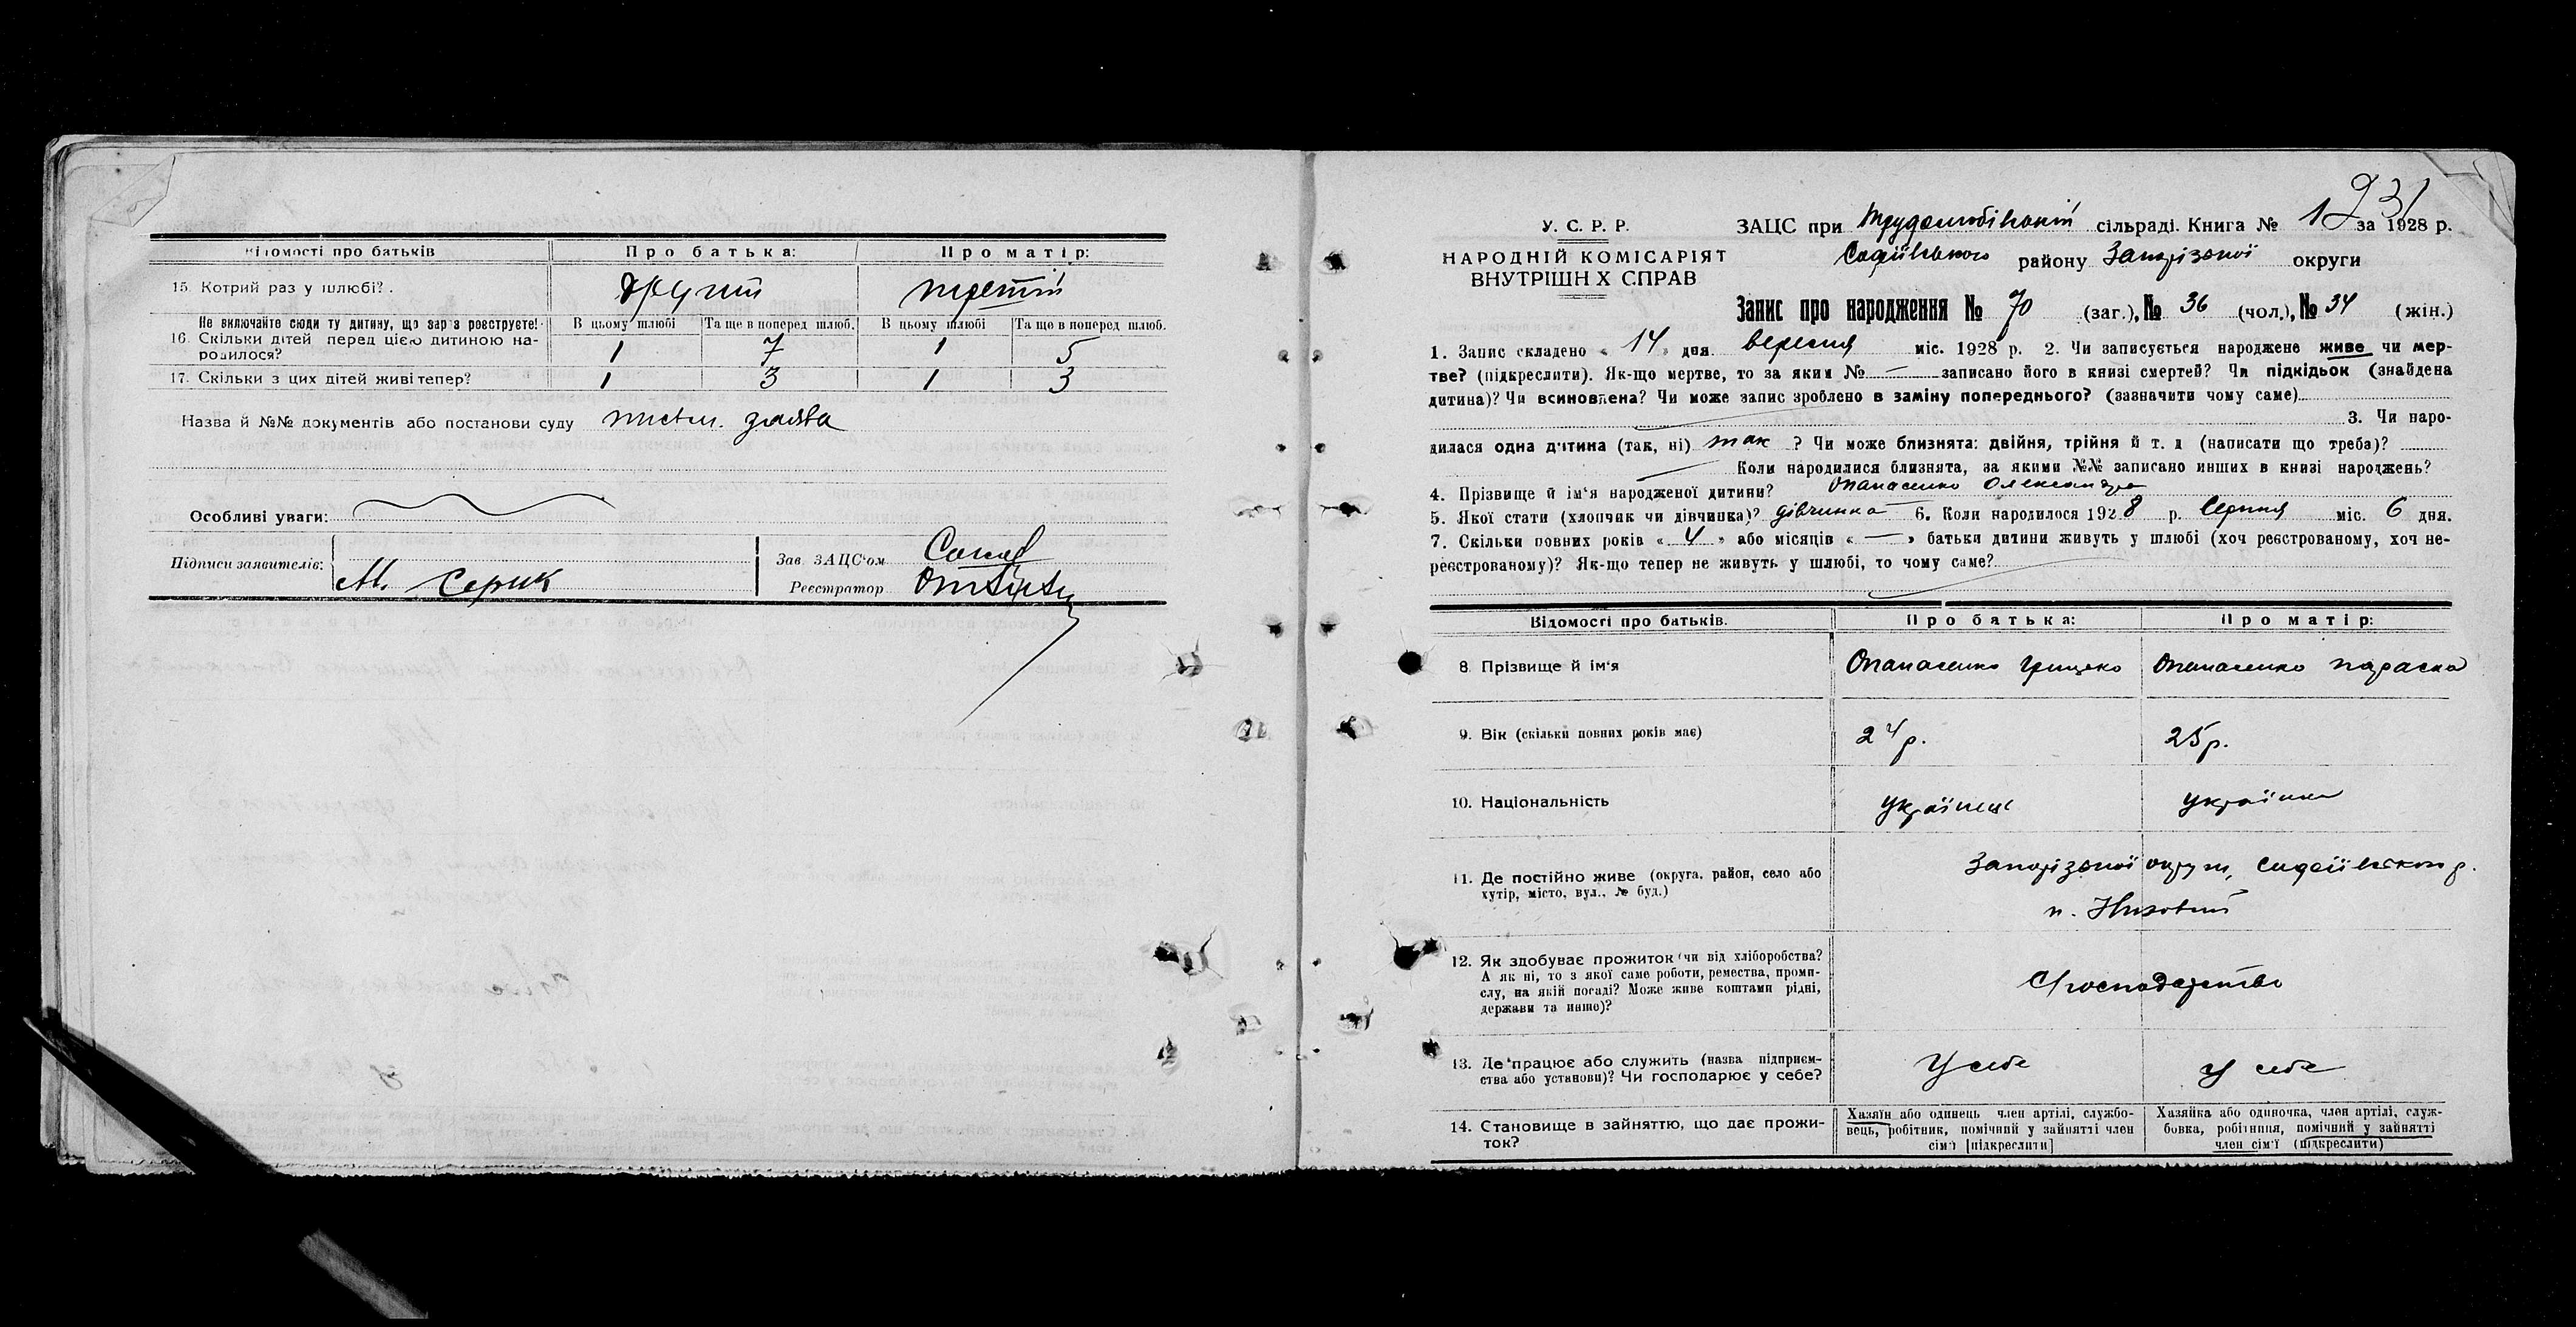 Відомості про батьків Про батька: Про матір:
15. Котрий раз у шлюбі? другий третій
Не включайте сюди ту дитину, що зараз реєструєте! В цьому шлюбі Та ще в поперед шлюб. В цьому шлюбі Та ще в поперед шлюб.
16. Скільки дітей перед цією дитиною на-
родилося? 1 7 1 5
17. Скільки з цих дітей живі тепер? 1 3 1 3
Назва й №№ документів або постанови суду письм. заява
Особливі уваги:
Підписи заявителів: М. Серик
Зав ЗАЦС'ом
Реєстратор
231
У. С. Р. Р.
НАРОДНІЙ КОМІСАРІЯТ
ВНУТРІШН Х СПРАВ
ЗАЦС при Трудолюбівській сільраді. Книга № 1 за 1928 р.
Софіївського району Запорізької округи
Запис про народження № 70 (заг.), № 36 (чол.), № 34 (жін.)
1. Запис складено « 14 » дня вересня міс. 1928 р. 2. Чи записується народжене живе чи мер-
тве? (підкреслити). Як-що мертве, то за яким № — записано його в книзі смертей? Чи підкідьок (знайдена
дитина)? Чи всиновлена? Чи може запис зроблено в заміну попереднього? (зазначити чому саме)
3. Чи наро-
дилася одна дитина (так, ні) так ? Чи може близнята: двійня, трійня й т. д (написати що треба)?
Коли народилися близнята, за якими №№ записано инших в книзі народжень?
4. Прізвище й ім'я народженої дитини? Опанасенко Олександра
5. Якої стати (хлопчик чи дівчинка)? дівчинка 6. Коли народилося 1928 р. Серпня міс. 6 дня.
7. Скільки повних років « 4 » або місяців « — » батьки дитини живуть у шлюбі (хоч реєстрованому, хоч не-
реєстрованому)? Як-що тепер не живуть у шлюбі, то чому саме?
Відомості про батьків. Про батька: Про матір:
8. Прізвище й ім'я Опанасенко Грицько Опанасенко Параска
9. Вік (скільки повних років має) 24 р. 25 р.
10. Національність українець українка
11. Де постійно живе (округа, район, село або
хутір, місто, вул., № буд.) Запорізької округи, Софіївськог р.
п. Низовий
12. Як здобуває прожиток (чи від хліборобства?
А як ні, то з якої саме роботи, ремества, проми-
слу, на якій посаді? Може живе коштами рідні,
держави та инше)?
13. Де працює або служить (назва підприєм-
ства або установи)? Чи господарює у себе? У себе у себе
14. Становище в зайняттю, що дає прожи-
ток?
Хазяїн або одинець член артілі, службо-
вець, робітник, помічний у зайнятті член
сім'ї [підкреслити]
Хазяйка або одиночка, член артілі, служ-
бовка, робітниця, помічний у зайнятті
член сім'ї (підкреслити)